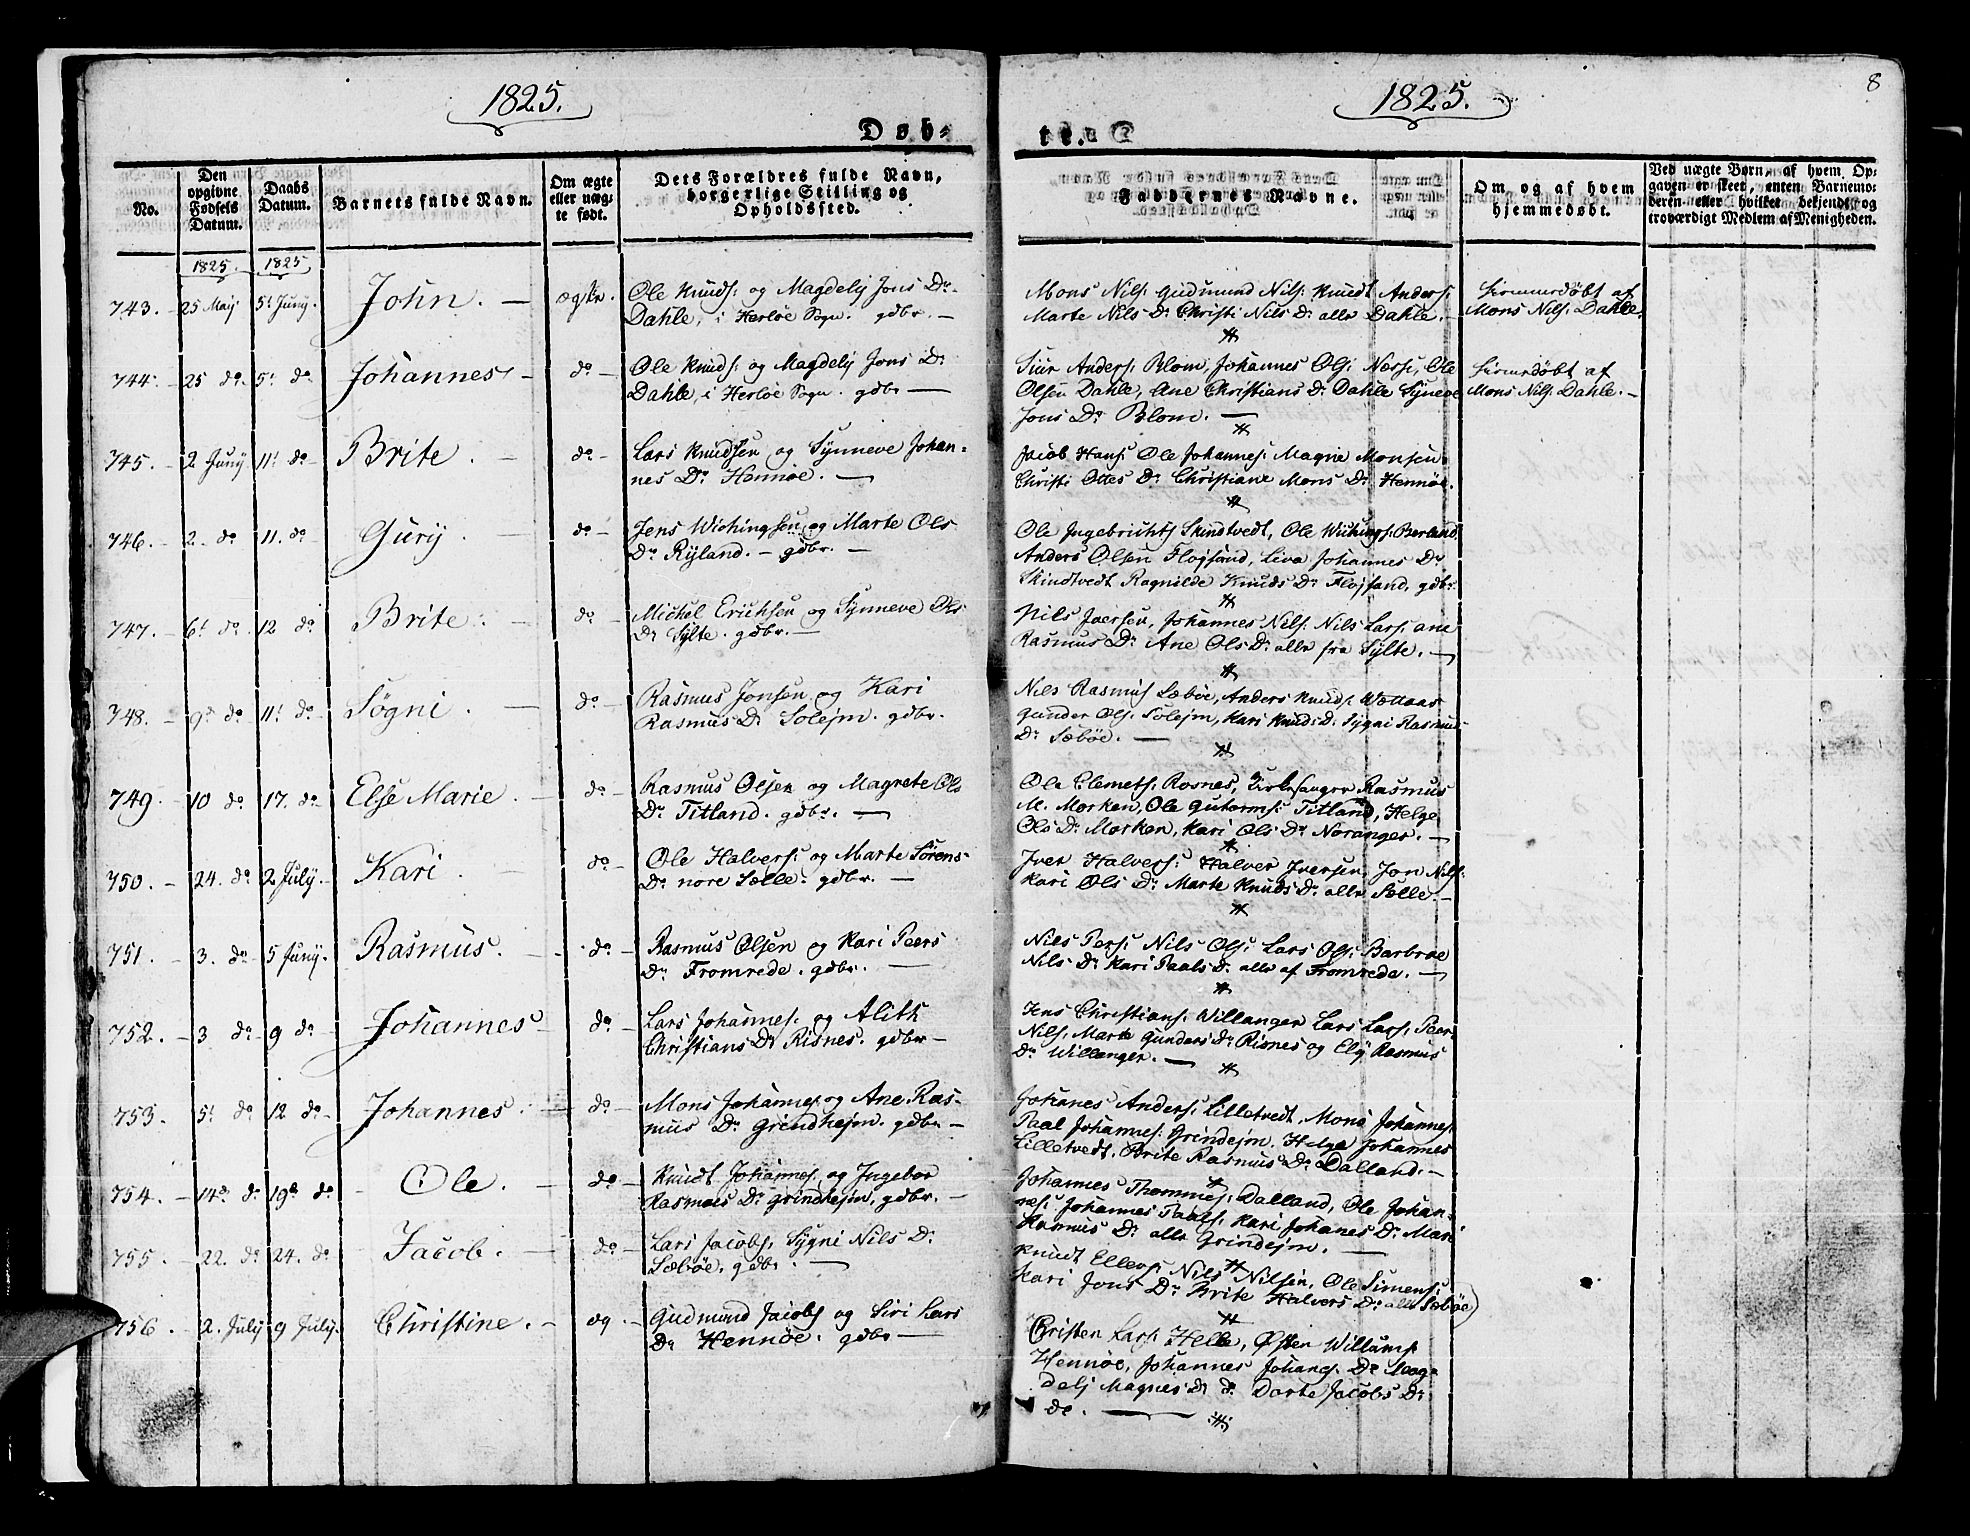 1825.
Døb-
No.
Den opgivne Fødsels Datum.
Daabs Datum.
Barnets fulde Navn.
Om ægte eller uægte født.
Dets Forældres fulde Navn, borgerlige Stilling og Opholdssted.
1825. 1825
743. 25 Maij 5t Junij. John. ægte. Ole Knuds: og Magdelj Jons Dr
Dahle, i Herløe Sogn. gdbr.
744. 25 do 5t do Johannes do Ole Knuds: og Magdelj Jons Dr
Dahle, i Herløe Sogn. gdbr
745. 2 Junij 11t do Brite. do Lars Knudsen og Synneve Johan-
nes Dr Hennøe.
746. 2. do 11. do Gurij. do Jens Wichingsen og Marte Ols
Dr Rijland. gdbr.
747. 6t do 12 do Brite. do Michel Erichsen og Synneve Ols
Dr Sylte. gdbr.
748. 9d do 11t do Søgni. do Rasmus Jonsen og Kari
Rasmus Dr Solejm. gdbr.
749. 10 do 17. do Else Marie. do Rasmus Olsen og Magrete Ols
Dr Titland. gdbr.
750. 24. do 2 Julij. Kari. do Ole Halvers: og Marte Sørens
Dr nore Sælle. gdbr.
751. 3. do 5 Junij. Rasmus. do Rasmus Olsen og Kari Peers
Dr Fromrede. gdbr.
752. 3 do 9 do Johannes do Lars Johannes: og Alith
Christians Dr Risnes. gdbr
753. 5t do 12 do Johannes. do Mons Johannes: og Ane Ras-
mus Dr Grindhejm. gdbr
754. 14d do 19d do Ole. do Knudt Johannes: og Ingebor
Rasmues Dr Grindhejm, gdbr.
755. 22. do 24. do Jacob. do Lars Jacobs: Sygni Nils Dr
Sæbøe. gdbr.
756. 2. Julij 9 Julij. Christine. do Gudmund Jacobs og Siri Lars
Dr Hennøe. gdbr
8
1825.
te.
Faddernes Navne.
Om og af hvem hjemmedøbt.
Ved uægte Børn, af hvem Opgaven er skeet, enten Barnemoderen eller hvilket bekjendt og troværdigt Medlem af Menigheden.
Mons Nils: Gudmund Nils: Knudt Anders: hiemmedøbt af
Marte Nils Dr Christi Nils Dr alle Dahle. Mons Nils: Dahle.
Siur Anders: Blom, Johannes Ols: Nesse, Ole hiemedøbt af
Olsen Dahle, Ane Christians Dr Dahle Syneve Mons Nils: Dahle.
Jons Dr Blom.
Jacob Hans: Ole Johannes: Magne Monsen
Christi Ottes Dr Christiane Mons Dr Hennøe.
Ole Ingebrichts Skindtvedt, Ole Wichings: Berland
Anders Olsen Flojsand, Liva Johannes Dr
Skindtvedt Ragnilde Knuds Dr Flojsand. gdbr
Nils Joersen, Johannes Nils: Nils Lars: ane
Rasmus Dr Ane Ols Dr alle fra Sylte.
Nils Rasmus Sæbøe, Anders Knuds:
Gunder Ols: Solejm, Kari Knuds: Dr Sygni Rasmus
Dr Sæbøe.
Ole Clemets: Rosnes, Kirkesanger Rasmus
M. Morken, Ole Gutorms: Titland, Helge
Ols Dr Morken, Kari Ols Dr Noranger.
Iver Halvers: Halver Iversen, Jon Nils:
Kari Ols Dr Marte Knuds Dr alle Sælle.
Nils Pers: Nils Ols: Lars Ols: Barbroe
Nils Dr Kari Paals Dr alle af Fromrede.
Jens Christians: Willanger Lars Lars: Peer
Nils: Marte Gunders Dr Risnes og Elij Rasmus
Dr Willanger.
Johanes Anders: Lilletvedt, Mons Johannes:
Paal Johannes: Grindejm. Helge Johannes
Lilletvedt. Brite Rasmus Dr Dalland.
Johannes Thommes: Dalland, Ole Johan-
nes: Johannes Paals: Kari Johanes Dr Mari
Rasmus Dr alle Grindejm.
Knudt Ellevs: Nils Nilsen, Ole Simens:
Kari Jons Dr Brite Halvers Dr alle Sæbøe
Cristen Lars: Helle, Østen Willums:
Hennøe, Johannes Johanes: Do Mag-
delj Magnes Dr do Dorte Jacobs Dr
do.